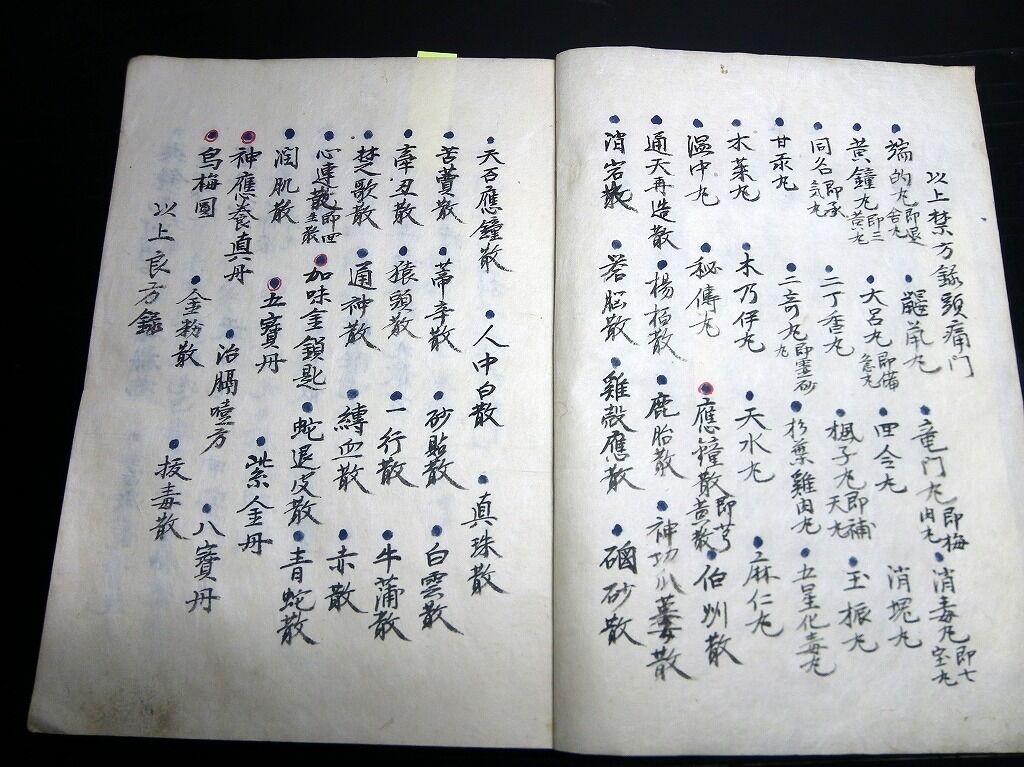 以上禁方錄頭痛門
端的丸即退 丸 鼴鼠丸 竜門丸即梅肉丸 消毒丸即七宝丸
黄鐘丸即三黄丸 大呂丸即備急丸 四令丸 消塊丸
同名即承気丸 二丁香丸 楓子丸即補天丸 玉振丸
甘汞丸 二奇丸即霊砂丸 杉葉雞肉丸 五星化毒丸
木萊丸 木乃伊丸 天水丸 麻仁丸
溫中丸 秘傳丸 應鐘散即芎黄散 伯州散
通天再造散 楊柏散 鹿胎散 神功 散
消宕散 若脳散 雞殻應散 硇砂散
天百應鐘散 人中白散 真珠散
苦蕒散 蒂辛散 砂貼散 白雲散
牽丑散 猿頭散 一行散 牛蒲散
楚歌散 通神散 縛血散 赤散
心連散即四 散 加味金鎖匙 蛇退皮散 青蛇散
潤肌散 五寶丹 紫金丹
神應養真丹 治膈噎方 八寶丹
烏梅圓 金粉散 拔毒散
以上良方錄